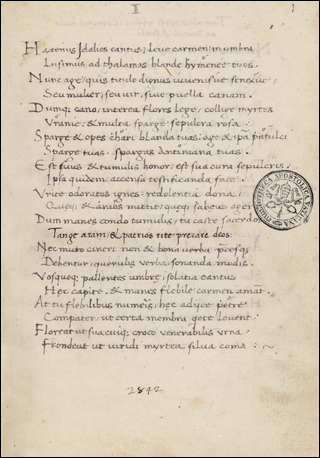 I
Hactenus Idalios cantus, leve carmen in umbra
Lusimus ad thalamos blande hymenęe tuos.
Nunc age, quis titulo dignus iuvenisve senexve,
Seu mulier, seu vir, sive puella canam.
Dumq; cano, interea flores lege, collige myrtos
Uranie, & multa sparge sepulcra rosa.
Sparge & opes blanda tuas: age &
Sparge tuas. spargas Antiniana tuas.
Est suus & tumulis honor: est sua cura sepulcris.
Ipsa quidem accensa testificanda face.
Urite odoratos ignes: redolentia dona
Quęq; & Arabs mittit: queq; Sabeus ager
Dum manes condo tumulis, tu casta sacerdos
Tange aram: & patrios rite precare deos:
Nec muto cineri non & bona verba
Debentur, querulis verba sonanda modis.
Vosq; pallentes umbrę, solatia cantus
Hęc capite, & manes flebile carmen amat.
At tu flebilibus numeris, hęc adijce Petre
Compater: ut certa membra quiete levent.
Floreat ut sua cuiq; croco venerabilis urna
Frondeat ut viridi myrtea silva coma:
2842
BIBLIOTHECA APOSTOLICA VATICANA